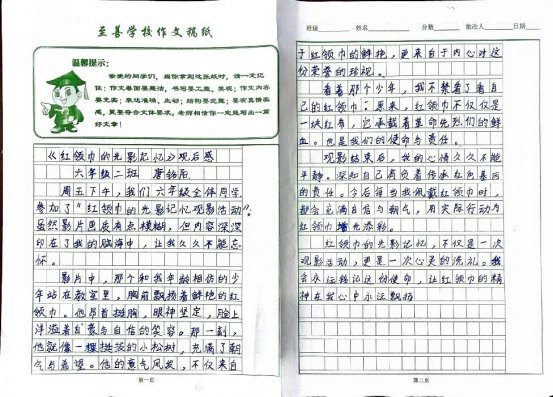 至善学校作文稿纸
温馨提示：
亲爱的同学们，当你拿到这张纸时，请一定记
住：作文卷面要整洁，书写要工整、美观；作文内容
要充实；表达准确、生动；结构要完整；要有真情实
感，更要符合文体要求。老师相信你一定能写出一篇
好文章！
《红领巾的光影记忆》观后感
六年级二班 唐铭阳
周五下午，我们六年级全体同学
参加了“红领巾的光影记忆观影活动”。
虽然影片画质有点模糊，但内容深深
印在了我的脑海中，让我久久不能忘
怀。
影片中，那个和我年龄相仿的少
年站在教室里，胸前飘扬着鲜艳的红
领巾。他昂首挺胸，眼神坚定，脸上
洋溢着自豪与自信的笑容。那一刻，
他就像一棵挺拔的小松树，充满了朝
气与希望。他的意气风发，不仅来自
第一页
班级 姓名 分数 批改人 日期
于红领巾的鲜艳，更来自于内心对这
份荣誉的珍视。
看着那个少年，我不禁看了看自
己的红领巾：原来，红领巾不仅仅是
一块红布，它承载着革命先烈们的鲜
血。也是我们的使命与责任。
观影结束后，我的心情久久不能
平静。深知自己肩负着传承红色基因
的责任。今后每当我佩戴红领巾时，
都会充满自信与朝气，用实际行动为
红领巾增光添彩。
红领巾的光影记忆，不仅是一次
观影活动，更是一次心灵的洗礼。我
会永远铭记这份使命，让红领巾的精
神在我心中永远飘扬
第二页